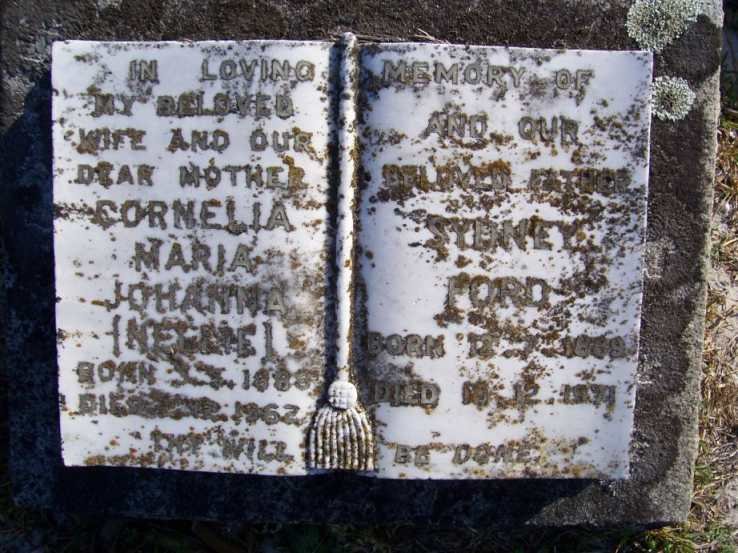 IN LOVING
MY BELOVED
WIFE AND OUR
DEAR MOTHER
CORNELIA
MARIA
JOHANNA
[NELLIE]
BORN 1888
DIED 1962
THY WILL
MEMORY OF
AND OUR
BELOVED FATHER
SYDNEY
FORD
BORN
DIED 12.1971
BE DONE